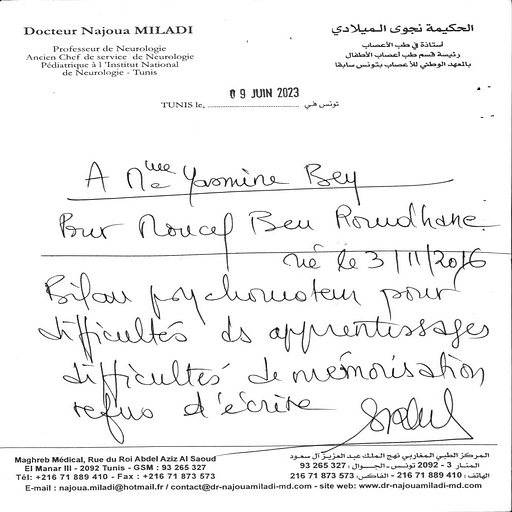 Docteur Najoua MILADI
Professeur de Neurologie
Ancien Chef de service de Neurologie
Pédiatrique à l'Institut National
de Neurologie - Tunis
الحكيمة نجوى الميلادي
أستاذة في طب الأعصاب
رئيسة قسم طب أعصاب الأطفال
بالمعهد الوطني للأعصاب بتونس سابقا
09 JUIN 2023
TUNIS le, تونس في
A Mme Yasmine Bey
Pour Moncef Ben Romdhane
né le 3/11/2016
Bilan psychomoteur pour
difficultés ds apprentissages
difficultés de mémorisation
refus d'écrire
Maghreb Médical, Rue du Roi Abdel Aziz Al Saoud
El Manar III - 2092 Tunis - GSM : 93 265 327
Tél: +216 71 889 410 - Fax : +216 71 873 573
المركز الطبي المغاربي نهج الملك عبد العزيز آل سعود
المنار 3 - 2092 تونس ـ الجـوال : 327 265 93
الهاتف : 410 889 71 216 - الفاكس: 573 873 71 216
E-mail : najoua.miladi@hotmail.fr / contact@dr-najouamiladi-md.com - site web: www.dr-najouamiladi-md.com